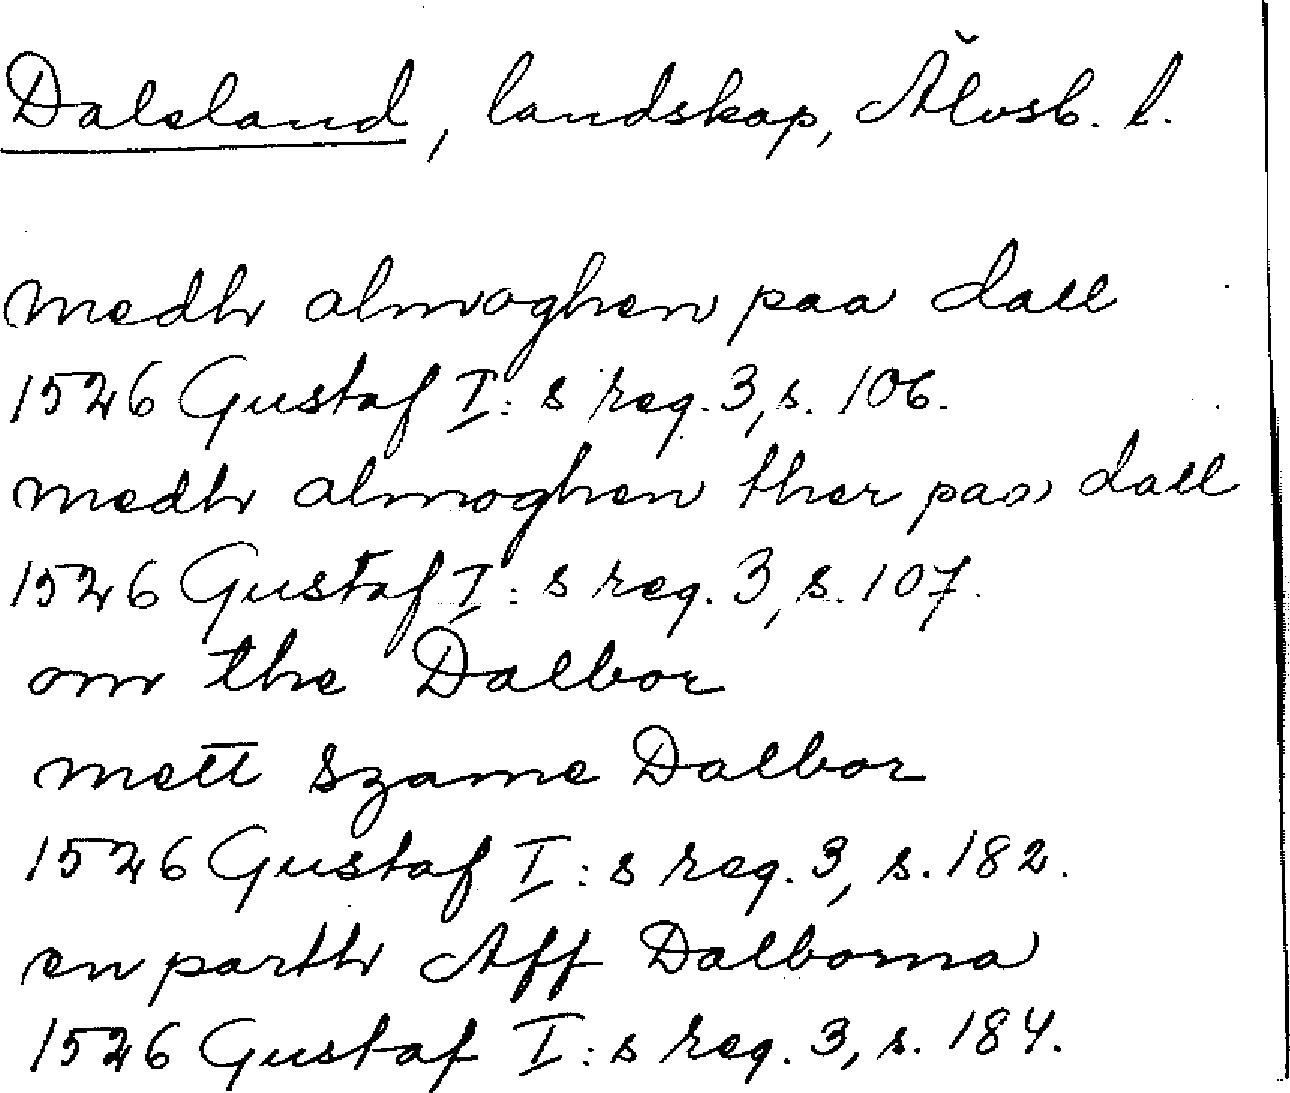 Dalsland, landskap, Älvsb. l.
medh almoghen paa dall
1526 Gustaf I:s reg. 3, s. 106.
medh almoghen ther paa dall
1526 Gustaf I:s reg. 3, s. 107.
om the Dalbor
mett szame Dalbor
1526 Gustaf I:s reg. 3, s. 182.
en parth Aff Dalborna
1526 Gustaf I:s reg. 3, s. 184.